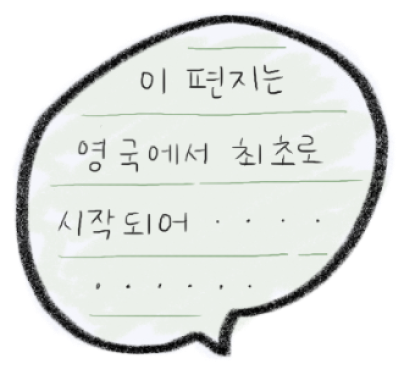 이 편지는
영국에서 최초로
시작되어 . . . .
. . . . . .